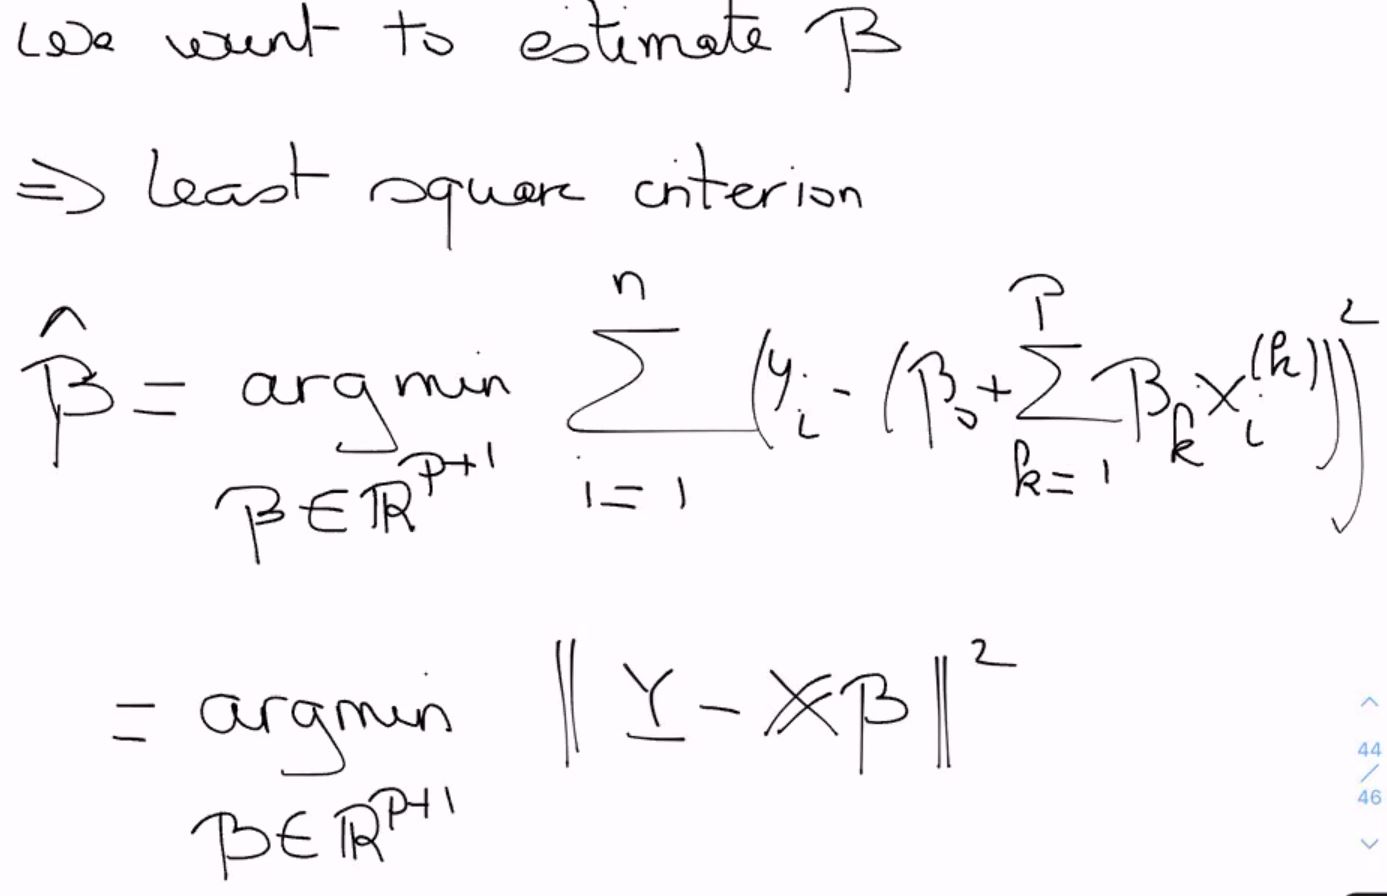 We want to estimate β
⇒ least square criterion
β̂ = argmin_{β∈ℝ^{p+1}} ∑_{i=1}^{n} (y_i - (β_0 + ∑_{k=1}^{p} β_k x_i^{(k)}))^2
= argmin_{β∈ℝ^{p+1}} ‖Y̲ - 𝕏β‖^2
44
/
46